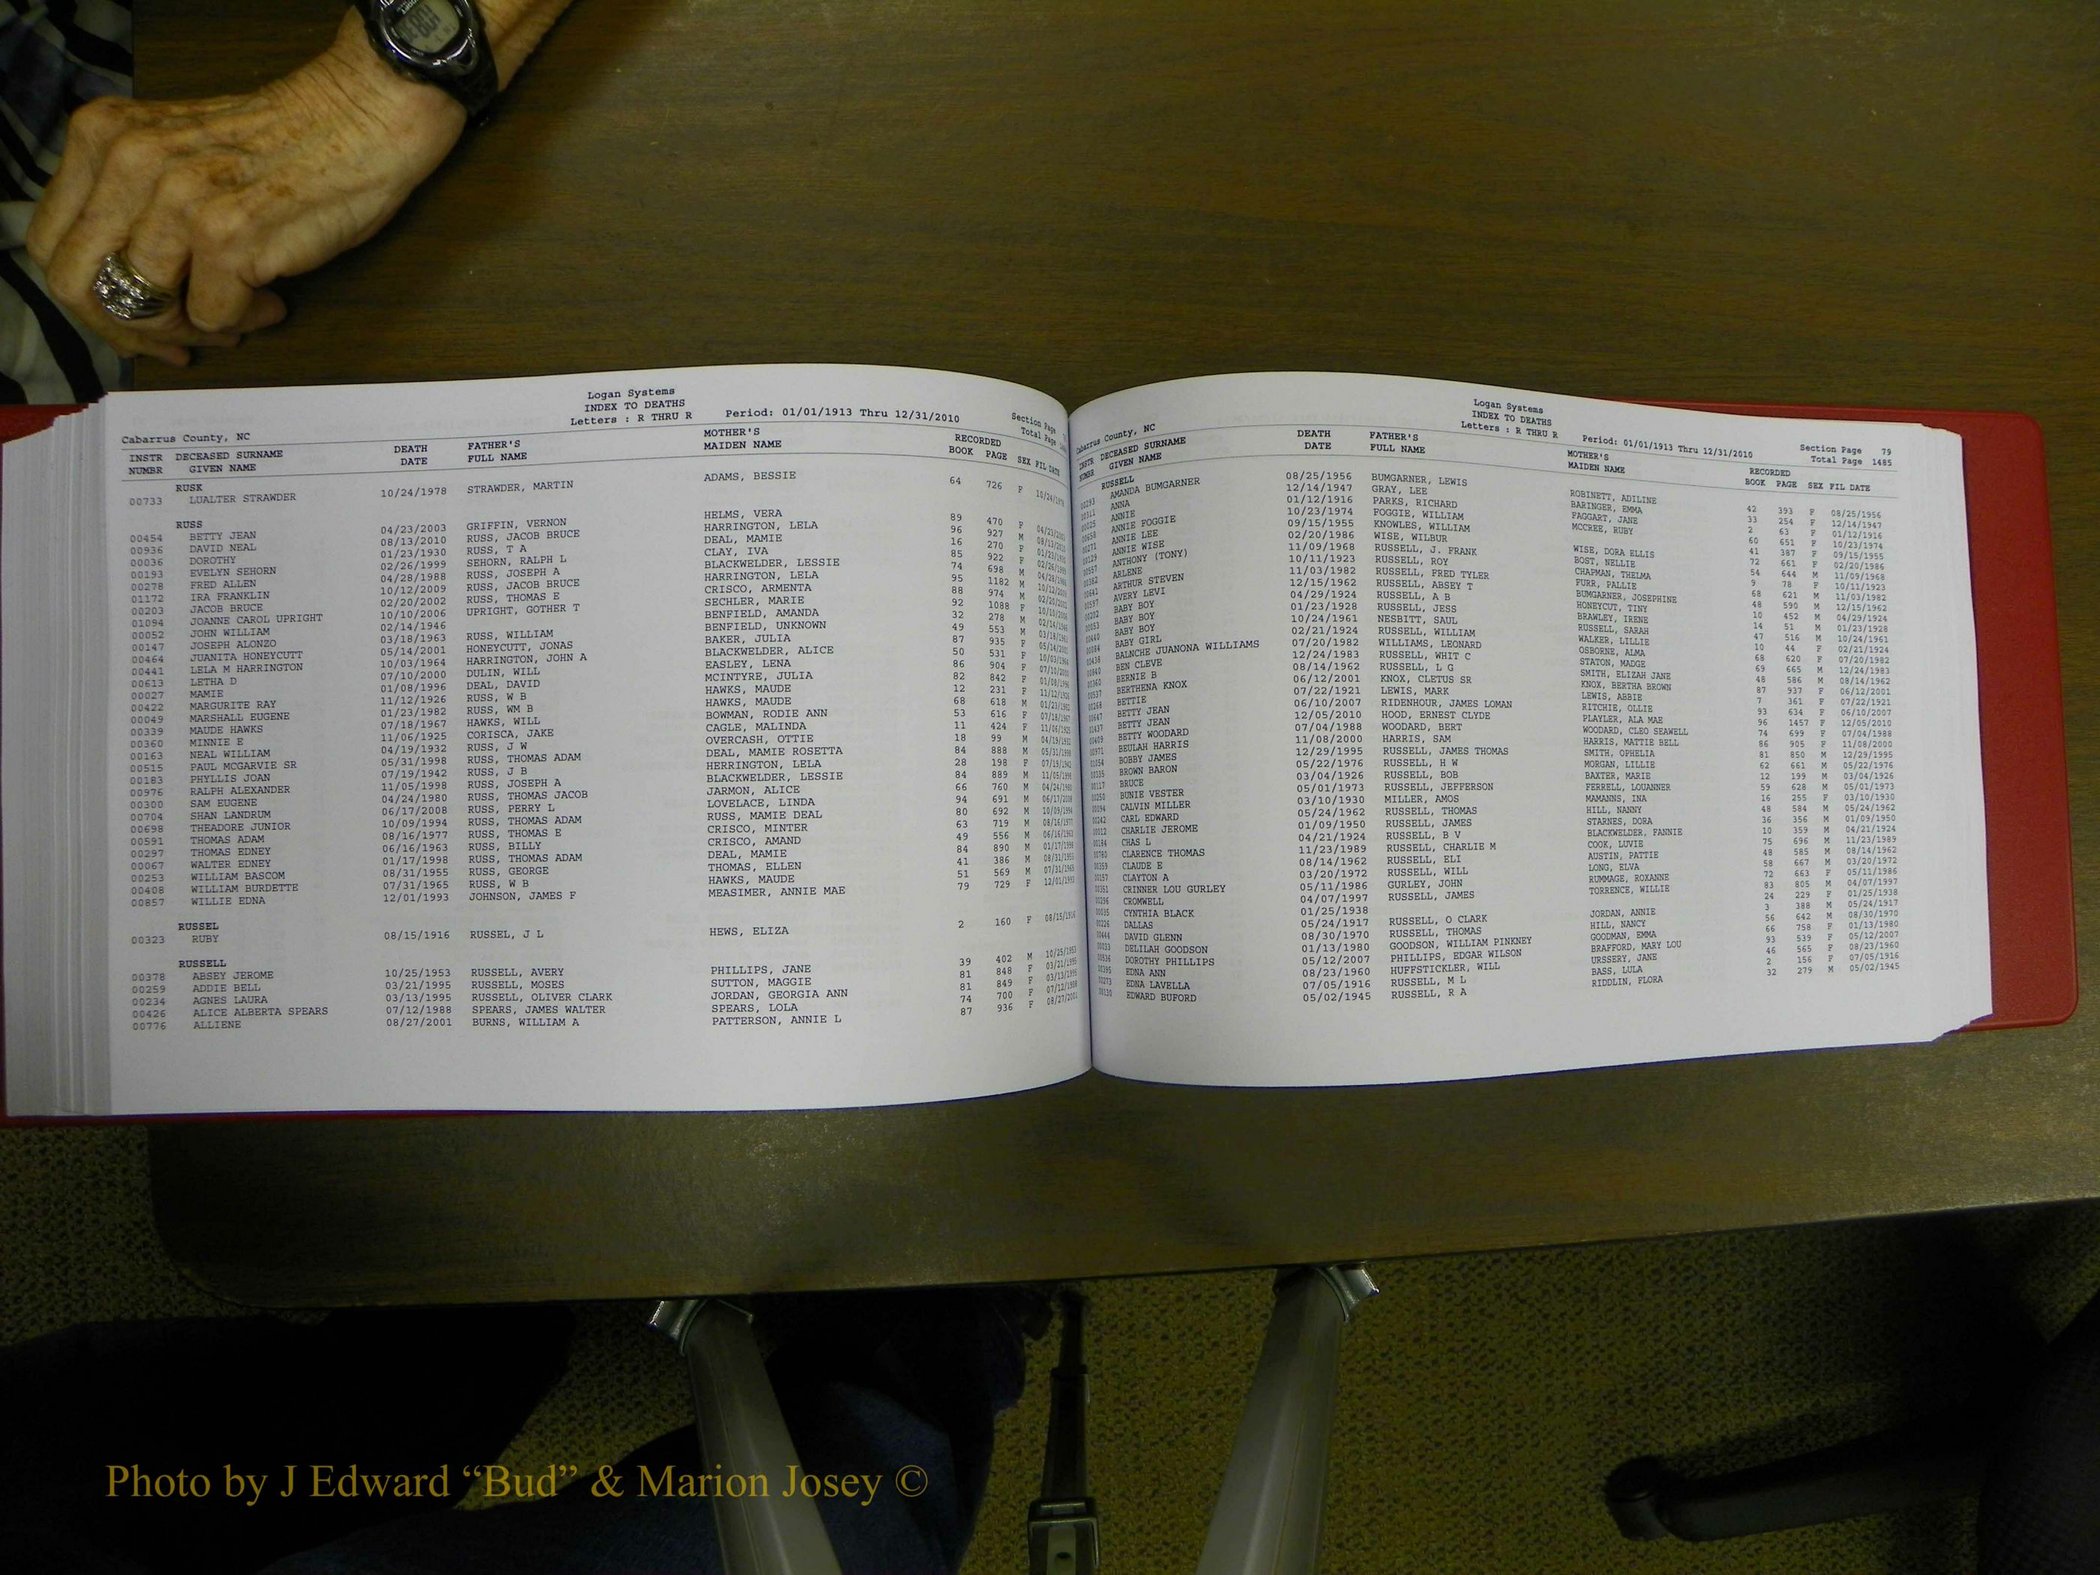 Logan Systems
INDEX TO DEATHS
Letters : R THRU R Period: 01/01/1913 Thru 12/31/2010
Cabarrus County, NC Section Page
Total Page
INSTR DECEASED SURNAME DEATH FATHER'S MOTHER'S RECORDED
NUMBR GIVEN NAME DATE FULL NAME MAIDEN NAME BOOK PAGE SEX FIL DATE
RUSK
00733 LUALTER STRAWDER 10/24/1978 STRAWDER, MARTIN ADAMS, BESSIE 64 726 F 10/24/1978
RUSS
00454 BETTY JEAN 04/23/2003 GRIFFIN, VERNON HELMS, VERA 89 470 F 04/23/2003
00936 DAVID NEAL 08/13/2010 RUSS, JACOB BRUCE HARRINGTON, LELA 96 927 M 08/13/2010
00036 DOROTHY 01/23/1930 RUSS, T A DEAL, MAMIE 16 270 F 01/23/1930
00193 EVELYN SEHORN 02/26/1999 SEHORN, RALPH L CLAY, IVA 85 922 F 02/26/1999
00278 FRED ALLEN 04/28/1988 RUSS, JOSEPH A BLACKWELDER, LESSIE 74 698 M 04/28/1988
01172 IRA FRANKLIN 10/12/2009 RUSS, JACOB BRUCE HARRINGTON, LELA 95 1182 M 10/12/2009
00203 JACOB BRUCE 02/20/2002 RUSS, THOMAS E CRISCO, ARMENTA 88 974 M 02/20/2002
01094 JOANNE CAROL UPRIGHT 10/10/2006 UPRIGHT, GOTHER T SECHLER, MARIE 92 1088 F 10/10/2006
00052 JOHN WILLIAM 02/14/1946 BENFIELD, AMANDA 32 278 M 02/14/1946
00147 JOSEPH ALONZO 03/18/1963 RUSS, WILLIAM BENFIELD, UNKNOWN 49 553 M 03/18/1963
00464 JUANITA HONEYCUTT 05/14/2001 HONEYCUTT, JONAS BAKER, JULIA 87 935 F 05/14/2001
00441 LELA M HARRINGTON 10/03/1964 HARRINGTON, JOHN A BLACKWELDER, ALICE 50 531 F 10/03/1964
00613 LETHA D 07/10/2000 DULIN, WILL EASLEY, LENA 86 904 F 07/10/2000
00027 MAMIE 01/08/1996 DEAL, DAVID MCINTYRE, JULIA 82 842 F 01/08/1996
00422 MARGURITE RAY 11/12/1926 RUSS, W B HAWKS, MAUDE 12 231 F 11/12/1926
00049 MARSHALL EUGENE 01/23/1982 RUSS, WM B HAWKS, MAUDE 68 618 M 01/23/1982
00339 MAUDE HAWKS 07/18/1967 HAWKS, WILL BOWMAN, RODIE ANN 53 616 F 07/18/1967
00360 MINNIE E 11/06/1925 CORISCA, JAKE CAGLE, MALINDA 11 424 F 11/06/1925
00163 NEAL WILLIAM 04/19/1932 RUSS, J W OVERCASH, OTTIE 18 99 M 04/19/1932
00515 PAUL MCGARVIE SR 05/31/1998 RUSS, THOMAS ADAM DEAL, MAMIE ROSETTA 84 888 M 05/31/1998
00183 PHYLLIS JOAN 07/19/1942 RUSS, J B HERRINGTON, LELA 28 198 F 07/19/1942
00976 RALPH ALEXANDER 11/05/1998 RUSS, JOSEPH A BLACKWELDER, LESSIE 84 889 M 11/05/1998
00300 SAM EUGENE 04/24/1980 RUSS, THOMAS JACOB JARMON, ALICE 66 760 M 04/24/1980
00704 SHAN LANDRUM 06/17/2008 RUSS, PERRY L LOVELACE, LINDA 94 691 M 06/17/2008
00698 THEADORE JUNIOR 10/09/1994 RUSS, THOMAS ADAM RUSS, MAMIE DEAL 80 692 M 10/09/1994
00591 THOMAS ADAM 08/16/1977 RUSS, THOMAS E CRISCO, MINTER 63 719 M 08/16/1977
00297 THOMAS EDNEY 06/16/1963 RUSS, BILLY CRISCO, AMAND 49 556 M 06/16/1963
00067 WALTER EDNEY 01/17/1998 RUSS, THOMAS ADAM DEAL, MAMIE 84 890 M 01/17/1998
00253 WILLIAM BASCOM 08/31/1955 RUSS, GEORGE THOMAS, ELLEN 41 386 M 08/31/1955
00408 WILLIAM BURDETTE 07/31/1965 RUSS, W B HAWKS, MAUDE 51 569 M 07/31/1965
00857 WILLIE EDNA 12/01/1993 JOHNSON, JAMES F MEASIMER, ANNIE MAE 79 729 F 12/01/1993
RUSSEL
00323 RUBY 08/15/1916 RUSSEL, J L HEWS, ELIZA 2 160 F 08/15/1916
RUSSELL
00378 ABSEY JEROME 10/25/1953 RUSSELL, AVERY PHILLIPS, JANE 39 402 M 10/25/1953
00259 ADDIE BELL 03/21/1995 RUSSELL, MOSES SUTTON, MAGGIE 81 848 F 03/21/1995
00234 AGNES LAURA 03/13/1995 RUSSELL, OLIVER CLARK JORDAN, GEORGIA ANN 81 849 F 03/13/1995
00426 ALICE ALBERTA SPEARS 07/12/1988 SPEARS, JAMES WALTER SPEARS, LOLA 74 700 F 07/12/1988
00776 ALLIENE 08/27/2001 BURNS, WILLIAM A PATTERSON, ANNIE L 87 936 F 08/27/2001
Logan Systems
INDEX TO DEATHS
Letters : R THRU R Period: 01/01/1913 Thru 12/31/2010
Cabarrus County, NC Section Page 79
Total Page 1485
INSTR DECEASED SURNAME DEATH FATHER'S MOTHER'S RECORDED
NUMBR GIVEN NAME DATE FULL NAME MAIDEN NAME BOOK PAGE SEX FIL DATE
RUSSELL
AMANDA BUMGARNER 08/25/1956 BUMGARNER, LEWIS ROBINETT, ADILINE 42 393 F 08/25/1956
ANNA 12/14/1947 GRAY, LEE BARINGER, EMMA 33 254 F 12/14/1947
ANNIE 01/12/1916 PARKS, RICHARD FAGGART, JANE 2 63 F 01/12/1916
ANNIE FOGGIE 10/23/1974 FOGGIE, WILLIAM MCCREE, RUBY 60 651 F 10/23/1974
ANNIE LEE 09/15/1955 KNOWLES, WILLIAM 41 387 F 09/15/1955
ANNIE WISE 02/20/1986 WISE, WILBUR WISE, DORA ELLIS 72 661 F 02/20/1986
ANTHONY (TONY) 11/09/1968 RUSSELL, J. FRANK BOST, NELLIE 54 644 M 11/09/1968
ARLENE 10/11/1923 RUSSELL, ROY CHAPMAN, THELMA 9 78 F 10/11/1923
ARTHUR STEVEN 11/03/1982 RUSSELL, FRED TYLER FURR, PALLIE 68 621 M 11/03/1982
AVERY LEVI 12/15/1962 RUSSELL, ABSEY T BUMGARNER, JOSEPHINE 48 590 M 12/15/1962
BABY BOY 04/29/1924 RUSSELL, A B HONEYCUT, TINY 10 452 M 04/29/1924
BABY BOY 01/23/1928 RUSSELL, JESS BRAWLEY, IRENE 14 51 M 01/23/1928
BABY BOY 10/24/1961 NESBITT, SAUL RUSSELL, SARAH 47 516 M 10/24/1961
BABY GIRL 02/21/1924 RUSSELL, WILLIAM WALKER, LILLIE 10 44 F 02/21/1924
BALNCHE JUANONA WILLIAMS 07/20/1982 WILLIAMS, LEONARD OSBORNE, ALMA 68 620 F 07/20/1982
BEN CLEVE 12/24/1983 RUSSELL, WHIT C STATON, MADGE 69 665 M 12/24/1983
BERNIE B 08/14/1962 RUSSELL, L G SMITH, ELIZAH JANE 48 586 M 08/14/1962
BERTHENA KNOX 06/12/2001 KNOX, CLETUS SR KNOX, BERTHA BROWN 87 937 F 06/12/2001
BETTIE 07/22/1921 LEWIS, MARK LEWIS, ABBIE 7 361 F 07/22/1921
BETTY JEAN 06/10/2007 RIDENHOUR, JAMES LOMAN RITCHIE, OLLIE 93 634 F 06/10/2007
BETTY JEAN 12/05/2010 HOOD, ERNEST CLYDE PLAYLER, ALA MAE 96 1457 F 12/05/2010
BETTY WOODARD 07/04/1988 WOODARD, BERT WOODARD, CLEO SEAWELL 74 699 F 07/04/1988
BEULAH HARRIS 11/08/2000 HARRIS, SAM HARRIS, MATTIE BELL 86 905 F 11/08/2000
BOBBY JAMES 12/29/1995 RUSSELL, JAMES THOMAS SMITH, OPHELIA 81 850 M 12/29/1995
BROWN BARON 05/22/1976 RUSSELL, H W MORGAN, LILLIE 62 661 M 05/22/1976
BRUCE 03/04/1926 RUSSELL, BOB BAXTER, MARIE 12 199 M 03/04/1926
BUNIE VESTER 05/01/1973 RUSSELL, JEFFERSON FERRELL, LOUANNER 59 628 M 05/01/1973
CALVIN MILLER 03/10/1930 MILLER, AMOS MAMANNS, INA 16 255 F 03/10/1930
CARL EDWARD 05/24/1962 RUSSELL, THOMAS HILL, NANNY 48 584 M 05/24/1962
CHARLIE JEROME 01/09/1950 RUSSELL, JAMES STARNES, DORA 36 356 M 01/09/1950
CHAS L 04/21/1924 RUSSELL, B V BLACKWELDER, FANNIE 10 359 M 04/21/1924
CLARENCE THOMAS 11/23/1989 RUSSELL, CHARLIE M COOK, LUVIE 75 696 M 11/23/1989
CLAUDE E 08/14/1962 RUSSELL, ELI AUSTIN, PATTIE 48 585 M 08/14/1962
CLAYTON A 03/20/1972 RUSSELL, WILL LONG, ELVA 58 667 M 03/20/1972
CRINNER LOU GURLEY 05/11/1986 GURLEY, JOHN RUMMAGE, ROXANNE 72 663 F 05/11/1986
CROMWELL 04/07/1997 RUSSELL, JAMES TORRENCE, WILLIE 83 805 M 04/07/1997
CYNTHIA BLACK 01/25/1938 24 229 F 01/25/1938
DALLAS 05/24/1917 RUSSELL, O CLARK JORDAN, ANNIE 3 388 M 05/24/1917
DAVID GLENN 08/30/1970 RUSSELL, THOMAS HILL, NANCY 56 642 M 08/30/1970
DELILAH GOODSON 01/13/1980 GOODSON, WILLIAM PINKNEY GOODMAN, EMMA 66 758 F 01/13/1980
DOROTHY PHILLIPS 05/12/2007 PHILLIPS, EDGAR WILSON BRAFFORD, MARY LOU 93 539 F 05/12/2007
EDNA ANN 08/23/1960 HUFFSTICKLER, WILL URSSERY, JANE 46 565 F 08/23/1960
EDNA LAVELLA 07/05/1916 RUSSELL, M L BASS, LULA 2 156 F 07/05/1916
EDWARD BUFORD 05/02/1945 RUSSELL, R A RIDDLIN, FLORA 32 279 M 05/02/1945
Photo by J Edward “Bud” & Marion Josey ©